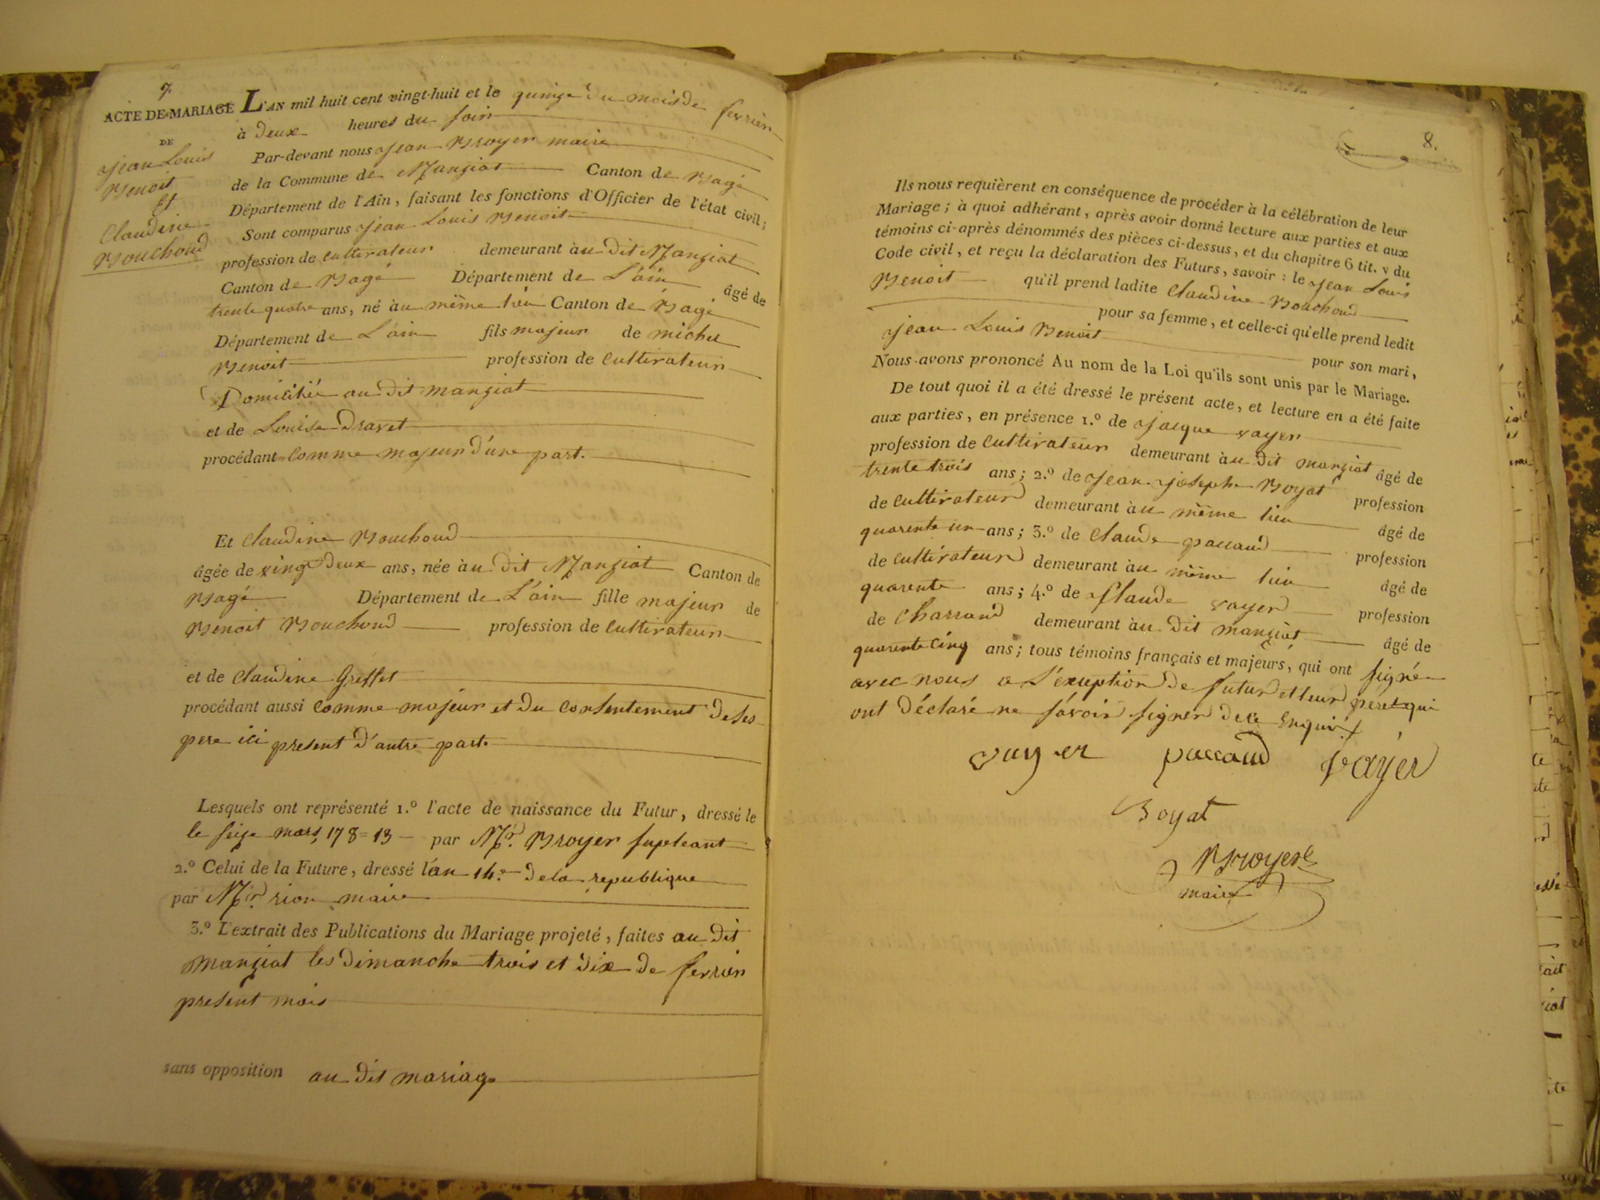 7.
ACTE DE MARIAGE
DE
Jean Louis
Benoit
Et
Claudine
Bouchoud
L'AN mil huit cent vingt-huit et le quinze du mois de ferrier
à deux heures du soir
Par-devant nous Jean Broyer maire
de la Commune de Manziat Canton de Bagé
Département de l'Ain, faisant les fonctions d'Officier de l'état civil;
Sont comparus Jean Louis Benoit
profession de cultivateur demeurant àu dit Manziat
Canton de Bagé Département de L'ain âgé de
trente quatre ans, né àu même lieu Canton de Bagé
Département de L'ain fils majeur de michel
Benoit profession de cultivateur
Domicilié au dit manziat
et de Louise Dravet
procédant comme majeur d'une part.
Et Claudine Bouchoud
âgée de vingt deux ans, née àu dit Manziat Canton de
Bagé Département de L'ain fille majeur de
Benoit Bouchoud profession de cultivateur
et de Claudine Greffet
procédant aussi comme majeur et du consentement de ses
pere ici present d'autre part.
Lesquels ont représenté 1.º l'acte de naissance du Futur, dressé le
le seize mars 178=13 par Mr. Broyer supleant
2.º Celui de la Future, dressé l'an 14e de la republique
par Mr. rion maire
3.º L'extrait des Publications du Mariage projeté, faites au dit
manziat les dimanche trois et dix de ferrier
present mois
sans opposition au dit mariage
8.
Ils nous requièrent en conséquence de procéder à la célébration de leur
Mariage; à quoi adhérant, après avoir donné lecture aux parties et aux
témoins ci-après dénommés des pièces ci-dessus, et du chapitre 6 tit. v du
Code civil, et reçu la déclaration des Futurs, savoir: le Jean Louis
Benoit qu'il prend ladite Claudine Bouchoud
pour sa femme, et celle-ci qu'elle prend ledit
Jean Louis Benoit pour son mari,
Nous avons prononcé Au nom de la Loi qu'ils sont unis par le Mariage.
De tout quoi il a été dressé le présent acte, et lecture en a été faite
aux parties, en présence 1.º de Jacque vayer
profession de cultivateur demeurant àu dit manziat âgé de
trente trois ans; 2.º de Jean Joseph Boyat profession
de cultivateur demeurant àu même lieu âgé de
quarente un ans; 3.º de Claude paccaud profession
de cultivateur demeurant àu même lieu âgé de
quarente ans; 4.º de Claude vayer profession
de Charrand demeurant àu dit manziat âgé de
quarente cinq ans; tous témoins français et majeurs, qui ont signé
avec nous a L'exception de futur et leur peres qui
ont déclaré ne savoir signer de ce Enquis
vayer paccaud vayer
Boyat
Broyer
maire